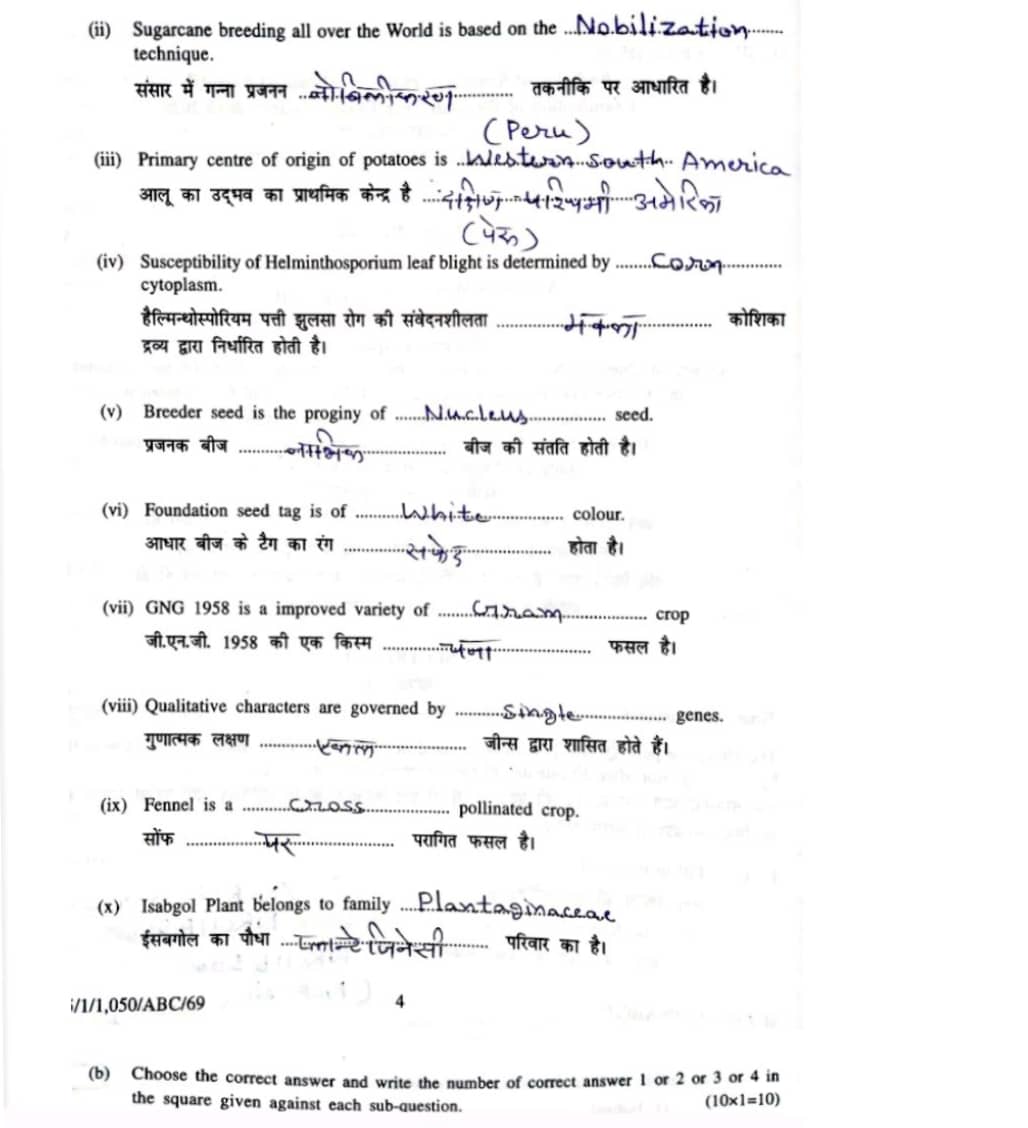 (ii) Sugarcane breeding all over the World is based on the ...Nobilization.......
technique.
संसार में गन्ना प्रजनन ...नोबिलीकरण............. तकनीकि पर आधारित है।
(Peru)
(iii) Primary centre of origin of potatoes is ..Western South America
आलू का उद्भव का प्राथमिक केन्द्र है ....दक्षिण-पश्चिमी अमेरिका
(पेरू)
(iv) Susceptibility of Helminthosporium leaf blight is determined by ........Corn.............
cytoplasm.
हैल्मिन्थोस्पोरियम पत्ती झुलसा रोग की संवेदनशीलता ...............मक्का................ कोशिका
द्रव्य द्वारा निर्धारित होती है।
(v) Breeder seed is the proginy of ......Nucleus................ seed.
प्रजनक बीज ..........नाभिक.................. बीज की संतति होती है।
(vi) Foundation seed tag is of ..........White................ colour.
आधार बीज के टैग का रंग .............सफेद................... होता है।
(vii) GNG 1958 is a improved variety of ........Gram.................. crop
जी.एन.जी. 1958 की एक किस्म .............चना..................... फसल है।
(viii) Qualitative characters are governed by ..........Single.................. genes.
गुणात्मक लक्षण .............एकल..................... जीन्स द्वारा शासित होते हैं।
(ix) Fennel is a ..........Cross.................. pollinated crop.
सोंफ .................पर....................... परागित फसल है।
(x) Isabgol Plant belongs to family ....Plantaginaceae
ईसबगोल का पौधा ...प्लान्टेजिनेसी......... परिवार का है।
/1/1,050/ABC/69 4
(b) Choose the correct answer and write the number of correct answer 1 or 2 or 3 or 4 in
the square given against each sub-question. (10x1=10)